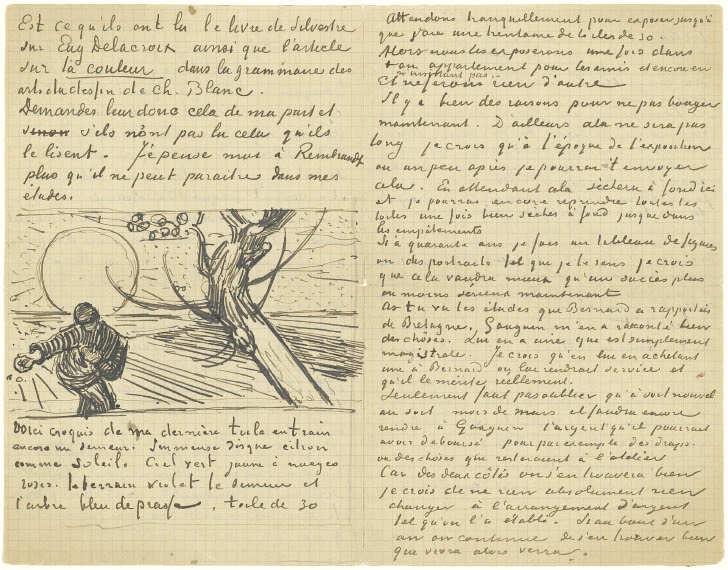 Est ce qu'ils ont lu le livre de Silvestre
sur Eug Delacroix ainsi que l'article
sur la couleur dans la grammaire des
arts du dessin de Ch. Blanc.
Demandes leur donc cela de ma part et
sinon s'ils n'ont pas lu cela qu'ils
le lisent. J'epense moi à Rembrandt
plus qu'il ne peut paraitre dans mes
études.
Voici croquis de ma dernière toile en train
encore un semeur. Immense disque citron
comme soleil. Ciel vert jaune à nuages
roses. le terrain violet le semeur et
l'arbre bleu de prusse. toile de 30
Attendons tranquillement pour exposer jusqu'à
que j'aie une trentaine de toiles de 30.
Alors nous les exposerons une fois dans
ton appartement pour les amis et encore en
n'insistant pas
Et ne ferons rien d'autre
Il y a bien des raisons pour ne pas bouger
maintenant. D'ailleurs cela ne sera pas
long je crois qu'à l'époque de l'exposition
ou un peu après je pourrai t'envoyer
cela. En attendant cela séchera à fond ici
et je pourrai encore reprendre toutes les
toiles une fois bien sèches à fond jusque dans
les empâtements
Si à quarante ans je fais un tableau de figures
ou des portraits tel que je le sens je crois
que cela vaudra mieux qu'un succès plus
ou moins sérieux maintenant
As tu vu les études que Bernard a rapportées
de Bretagne, Gauguin m'en a raconté bien
des choses. Lui en a une qui est simplement
magistrale. Je crois qu'en lui en achetant
une à Bernard on lui rendrait service et
qu'il le mérite réellement.
Seulement faut pas oublier qu'à soit nouvel
an soit mois de mars il faudra encore
rendre à Gauguin l'argent qu'il pourrait
avoir déboursé pour par exemple des draps
ou des choses qui resteraient à l'atelier
Car des deux côtés on s'en trouvera bien
je crois de ne rien absolument rien
changer à l'arrangement d'argent
tel qu'on l'a établi. Si au bout d'un
an on continue de s'en trouver bien
que vivra alors verra.